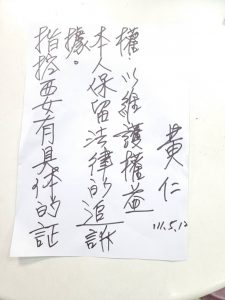 指控要有具体的証
據。
本人保留法律的追訴
權.以維護權益
黃仁
111.5.12